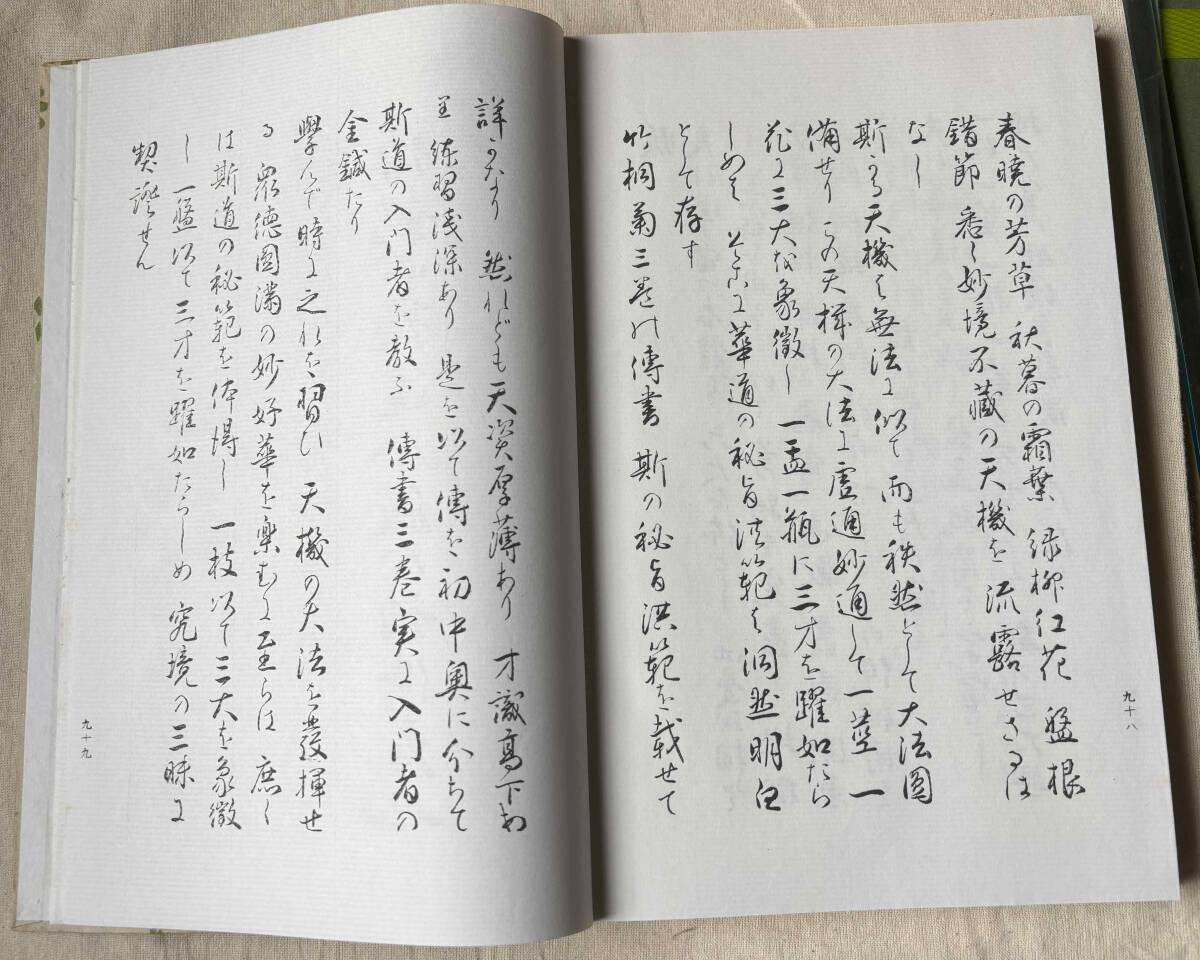 春曉の芳草 秋暮の霜葉 緑柳紅花 盤根
錯節 悉く妙境不藏の天機を流露せさるは
なし
斯かる天機は無法に似て 而も秩然として大法圓
備せり この天機の大法に虚通妙通して一莖一
花に三大を象徴し 一盂一瓶に三才を躍如たら
しめて 華道の秘旨洪範は洞然明白
として存す
竹桐菊三巻の傳書 斯の秘旨洪範を載せて
九十八
詳かなり 然れども天資厚薄あり 才識高下あ
り 練習浅深あり 是を以て傳を初中奥に分ちて
斯道の入门者を教ふ 傳書三巻実に入门者の
金鍼たり
學んで時に之れを習ひ 天機の大法を發揮せ
る 衆徳圓満の妙好華を樂むに至らは 庶く
は斯道の秘範を体得し 一枝以て三大を象徴
し 一盤以て三才を躍如たらしめ 究境の三昧に
契證せん
九十九